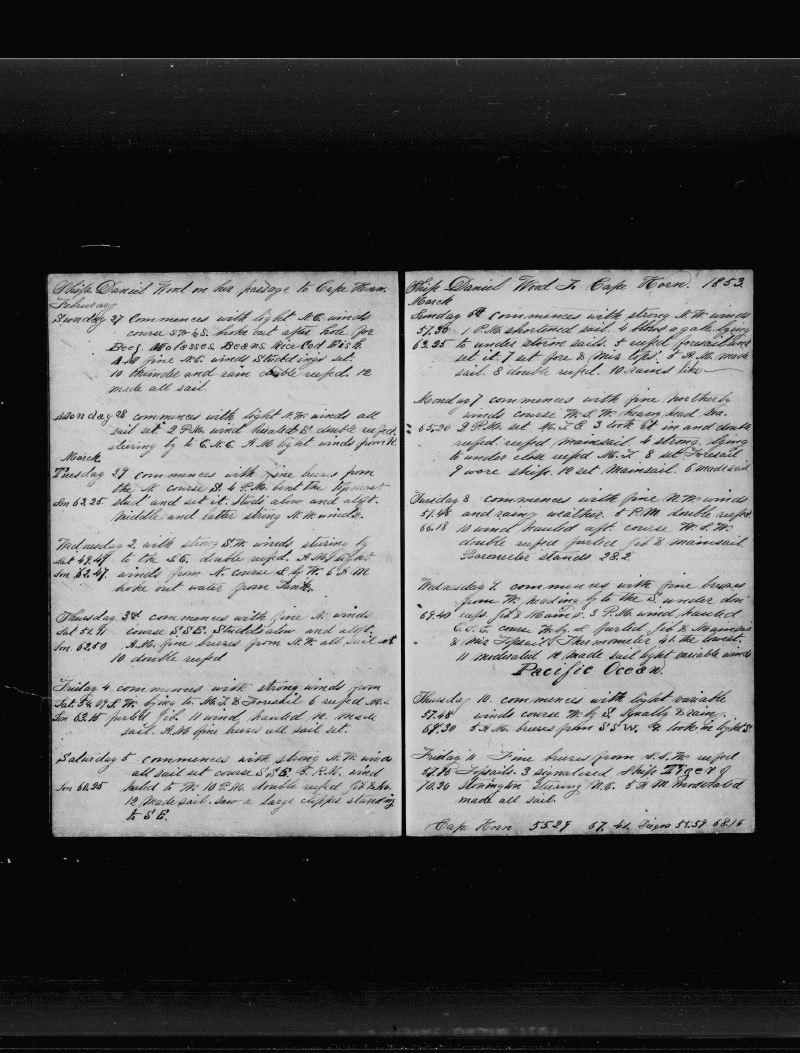 Ship Daniel Wood on her passage to Cape Horn.
February
Sunday 27 Commences with light N.E. winds
course S.W.4S. broke out after hole for
Beef Molasses Beans Rice Cod Fish
A.M. fine N.E. winds Studdings set.
10 thunder and rain double reefed. 12
made all sail.
Monday 28 commences with light N.W. winds all
sail set 2 P.M. wind hauled S. double reefed
steering by to E.N.E. A.M. light winds from N.
March
Tuesday 29 commences with fine brezes from
the N. course S. 4 P.M. bent the topmast
Lon 63.25 stud and set it. Studs alow and aloft.
middle and latter strong N.W. winds.
Wednesday 2. with strong S.W. winds steering by
Lat 49.47 to the S.E. double reefed. A.M. light
Lon 62.47. winds from N. course S by W. 6 A M
broke out water from Tank.
Thursday 3rd commences with fine N. winds
Lat 51.41 course S.S.E. Studds alow and aloft.
Lon 62.50 A.M. fine brezes from N.W. all sail set
10 double reefed
Friday 4 commences with strong winds from
Lat. 54.09 S.W. lying to. M.T. & Foresail 6 reefed
Lon 63.15 furled Jib. 11 wind hauled N. made
sail. A.M. fine brezes all sail set.
Saturday 5 commences with strong N.W. winds
all sail set course S.S.E. wind
Lon 60.25 haled to W. 10 P.M. double reefed
12 Made sail. Saw a large clipper standing
to S E.
Ship Daniel Wood To Cape Horn. 1853
March
Sunday 6th commences with strong N.W. winds
57.30 1 P.M. shortened sail. 4 blows a gale lying
63.25 to under storm sails. 5 reefed foresail and
set it. 7 set fore & Miz tops. 5 A.M. made
sail. 8 double reefed. 10 rains like
Monday 7 commences with fine Northerly
winds course W.S.W. heavy head sea.
65.20 2 P.M. set M.T.G 3 took it in and double
reefed. reefed mainsail 4 strong, lying
to under close reefed M.T. 8 set Foresail
9 wore ship. 12 set Mainsail. 6 made sail
Tuesday 8 commences with fine N.W. winds
57.48 and rainy weather. 5 P.M. double reefed
66.18 10 wind hauled aft. course W.S.W.
double reefed furled jib & mainsail
Barometer stands 28.2
Wednesday 9. commences with fine brezes
from W. heading to the S. under dou
69.40 reefs Jib & Mains. 3 P.M. wind hauled
E.S.E. course W by S. furled Jib & Mainsail
& Miz Topsail. Thermometer 41 the lowest.
11 moderated 12 made sail light variable winds
Pacific Ocean.
Thursday 10. commences with light variable
57.48 winds course W. by S. squally & rainy.
68.30 5 A.M. brezes from S S W. took in light
Friday 11 Fine brezes from S.S.W. reefed
Topsails. 3 signalized Ship Tiger of
70.20 Stonington Steering N.E. 5 A M moderated
made all sail.
Cape Horn 55 29 67.41. 55.59 68.16